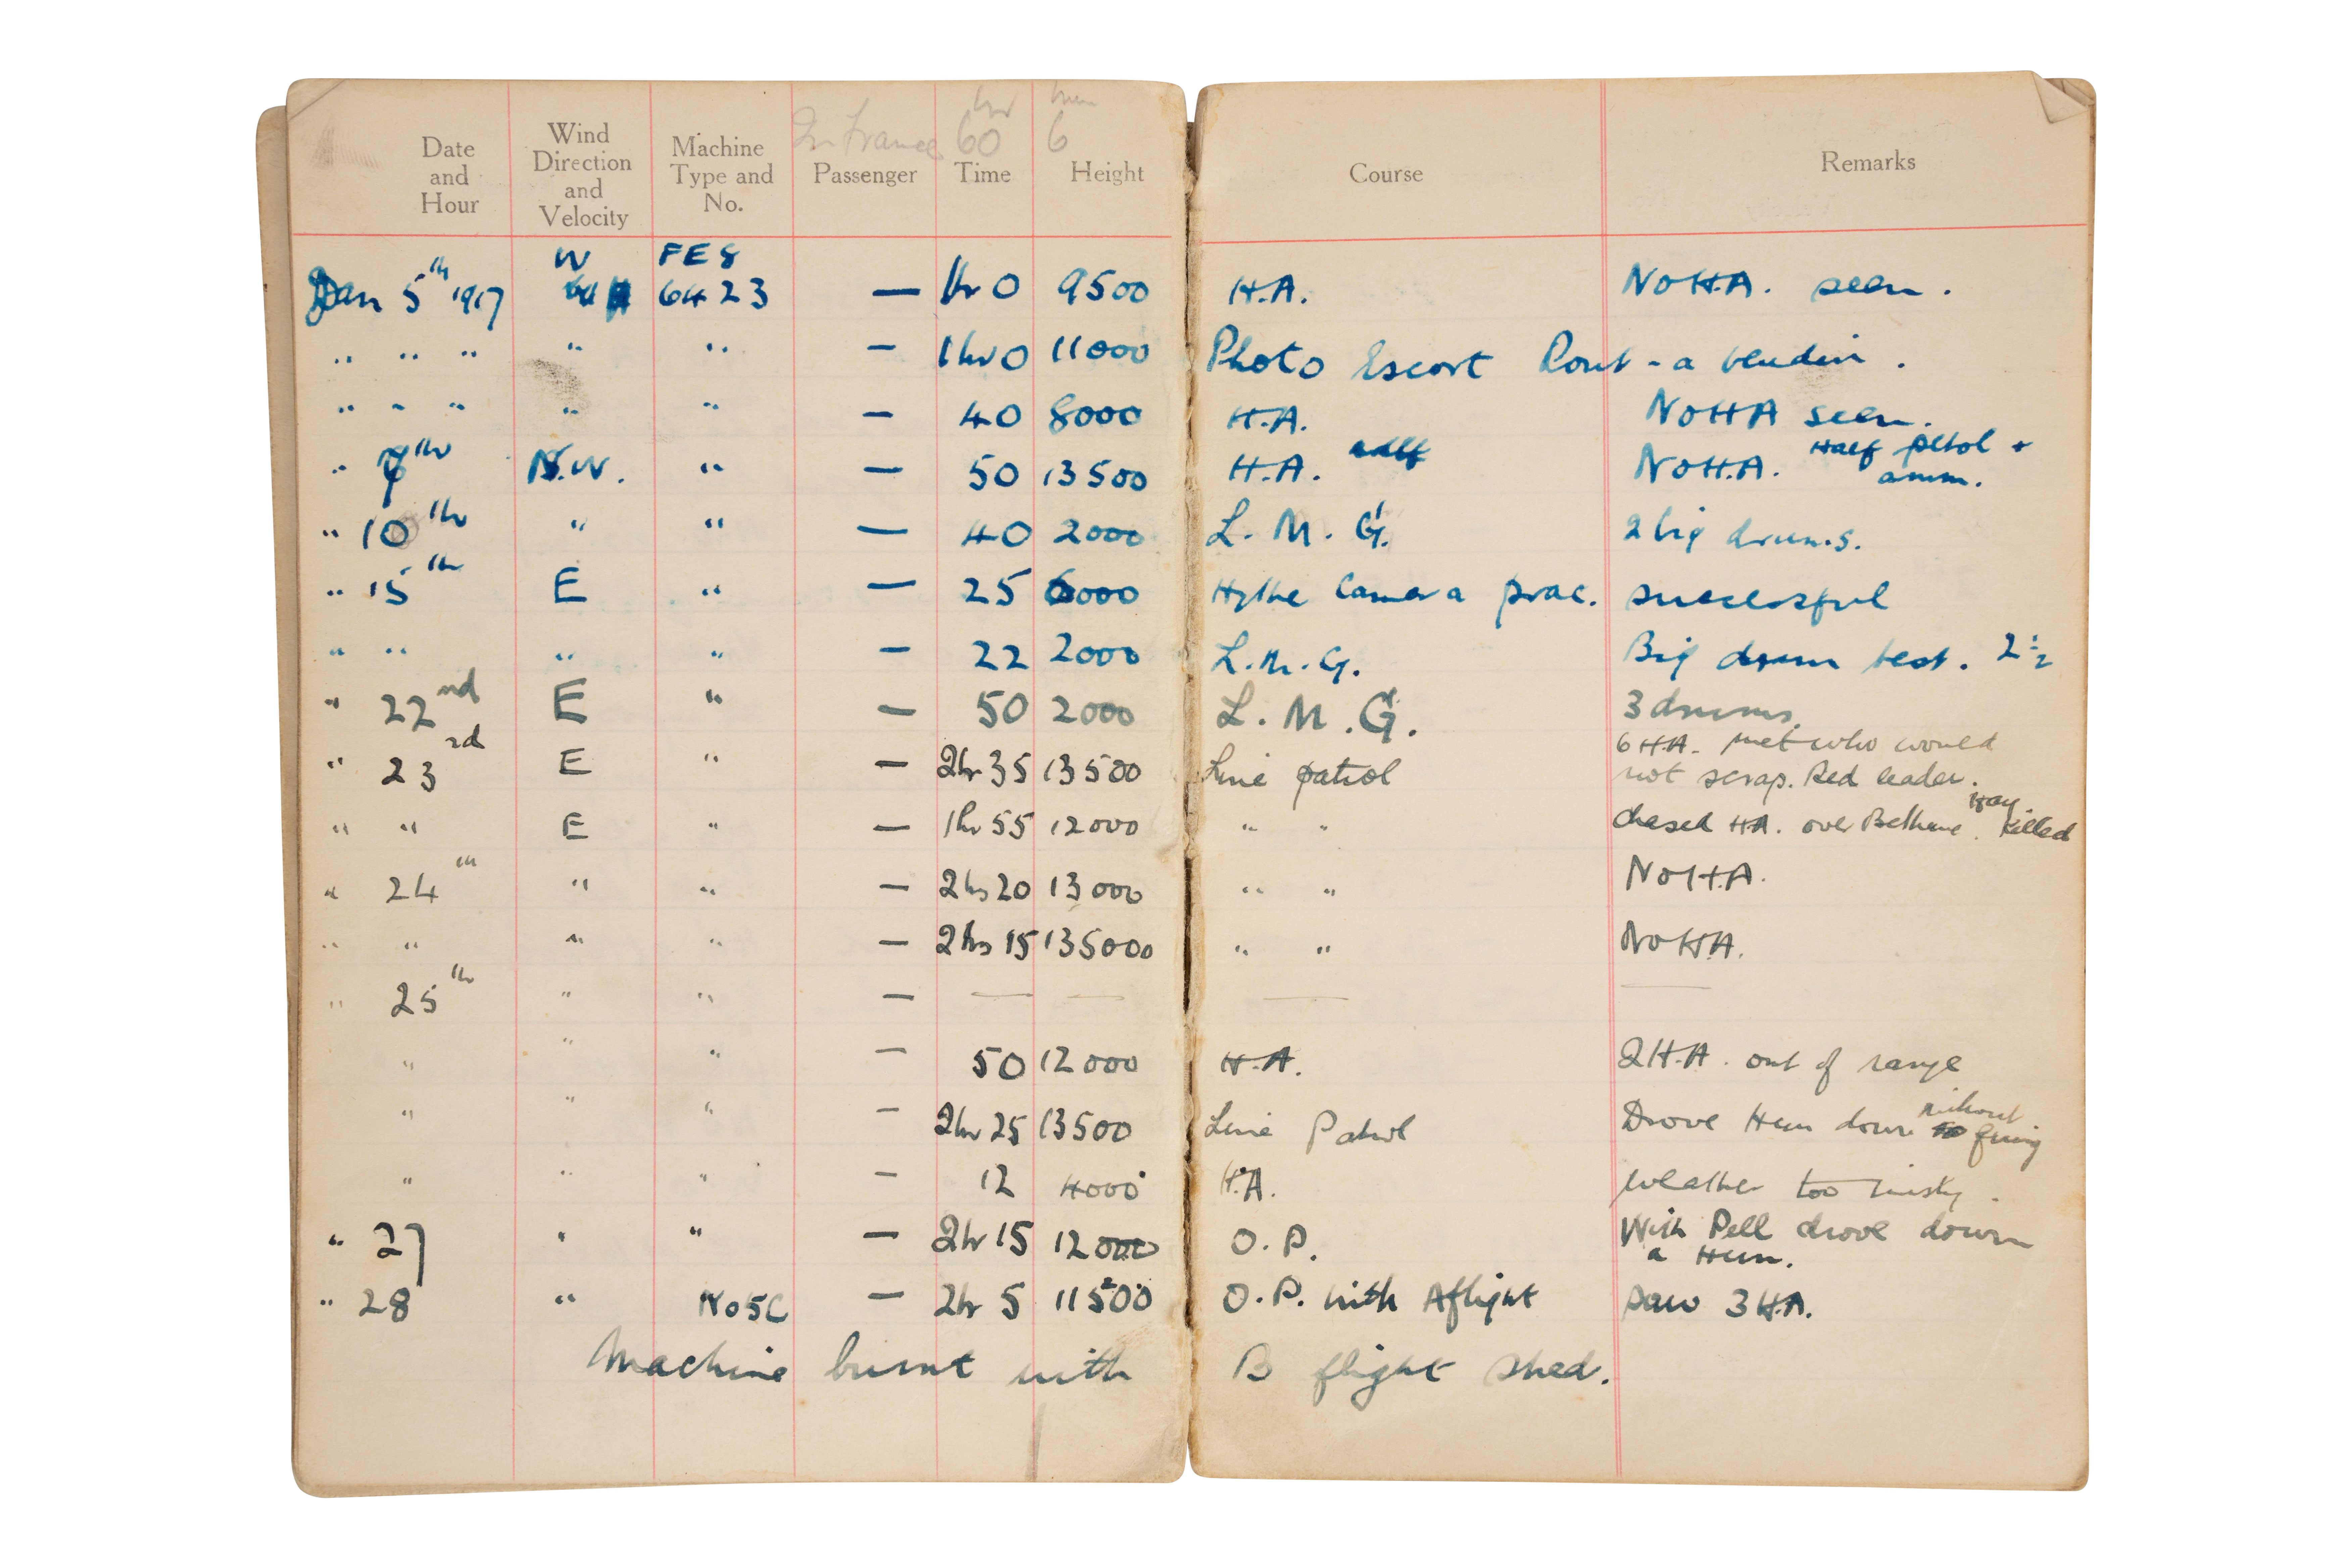 In France 60 hr 6 min
Date and Hour Wind Direction and Velocity Machine Type and No. Passenger Time Height Course Remarks
Jan 5th 1917 W FE8 6423 — 1hr 0 9500 H.A. No H.A. seen.
" " " " " — 1hr 0 11000 Photo Escort Pont-a vendin.
" " " " " — 40 8000 H.A. No HA seen.
" 7th N.W. " — 50 13500 H.A. No H.A. Half petrol + amm.
" 10th " " — 40 2000 L.M.G. 2 big drums.
" 15th E " — 25 6000 Hythe Camera prac. successful
" " " " — 22 2000 L.M.G. Big drum test. 2½
" 22nd E " — 50 2000 L.M.G. 3 drums.
" 23rd E " — 2hr 35 13500 Line patrol 6 HA. met who would not scrap. Red leader.
" " E " — 1hr 55 12000 " " chased HA. over Bethune. Hay Killed
" 24th " " — 2hrs 20 13000 " " No H.A.
" " " " — 2hrs 15 135000 " " No H.A.
" 25th " " — — — — —
" " " — 50 12000 H.A. 2 H.A. out of range
" " " — 2hr 25 13500 Line Patrol Drove Hun down without firing
" " " — 12 4000 H.A. Weather too misty.
" 27 " " — 2hr 15 12000 O.P. With Pell drove down a Hun.
" 28 " No 5C — 2hr 5 11500 O.P. with A flight Saw 3 H.A.
Machine burnt with B flight shed.